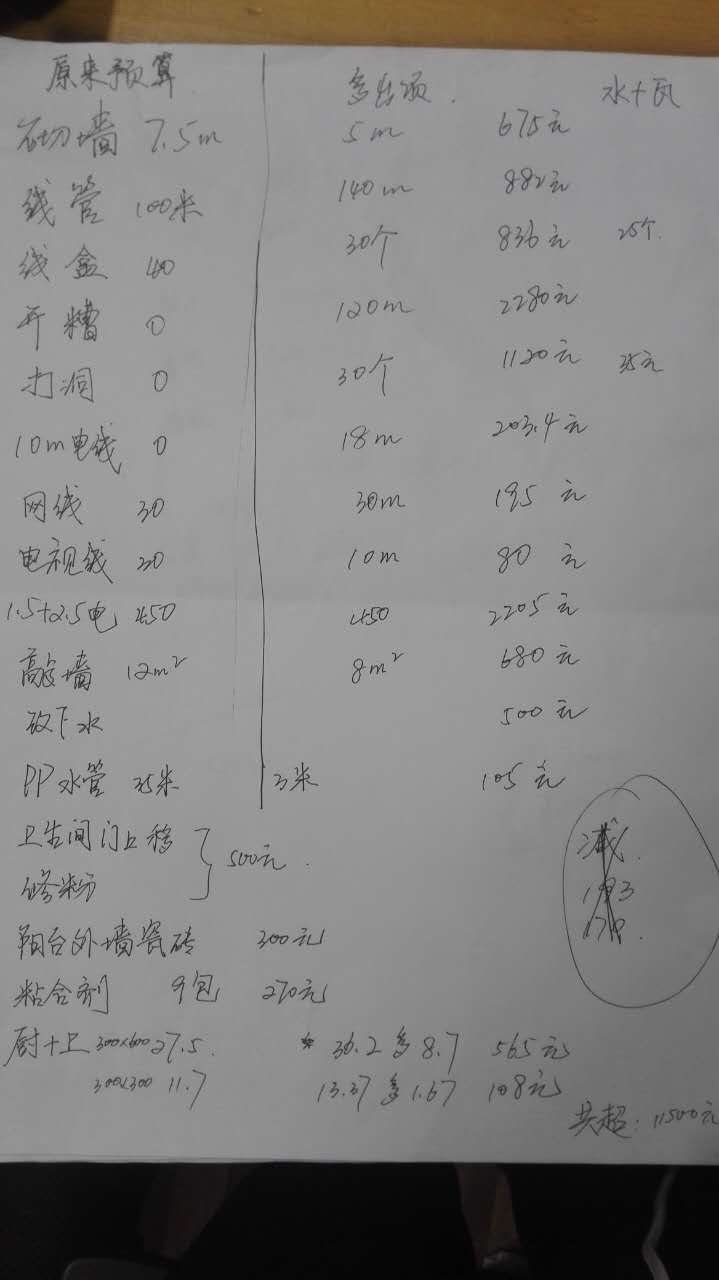 原来预算 多出项 水+瓦
砌墙 7.5m 5m 675元
线管 100米 140m 882元
线盒 40 30个 836元 25个
开槽 0 120m 2280元
打洞 0 30个 1120元 35元
10m电线 0 18m 203.4元
网线 30 30m 195元
电视线 20 10m 80元
1.5+2.5电 450 450 2205元
墙 12m² 8m² 680元
改下水 500元
PP水管 35米 3米 105元
卫生间门上移
修粉 500元
减
193
阳台外墙瓷砖 300元
粘合剂 9包 270元
厨+卫 300×600 27.5 36.2多8.7 565元
300×300 11.7 13.37多1.67 108元
共超:11500元